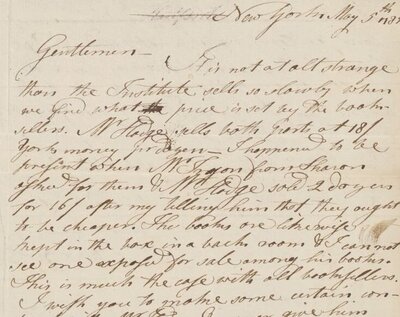 New York May 5th 178
Gentlemen — It is not at all strange
than the Institute sells so slowly when
we find what price is set by the book-
sellers. Mr Hodge sells both parts at 18/
York money pr dozen — I happened to be
present when Mr Tryon from Sharon
asked for them & Mr Hodge sold 2 dozen
for 16/ after my telling him that they ought
to be cheaper. The books are likewise
kept in the box in a back room & I cannot
see one exposed for sale among his books.
This is much the case with all booksellers.
I wish you to make some certain con-
gave him